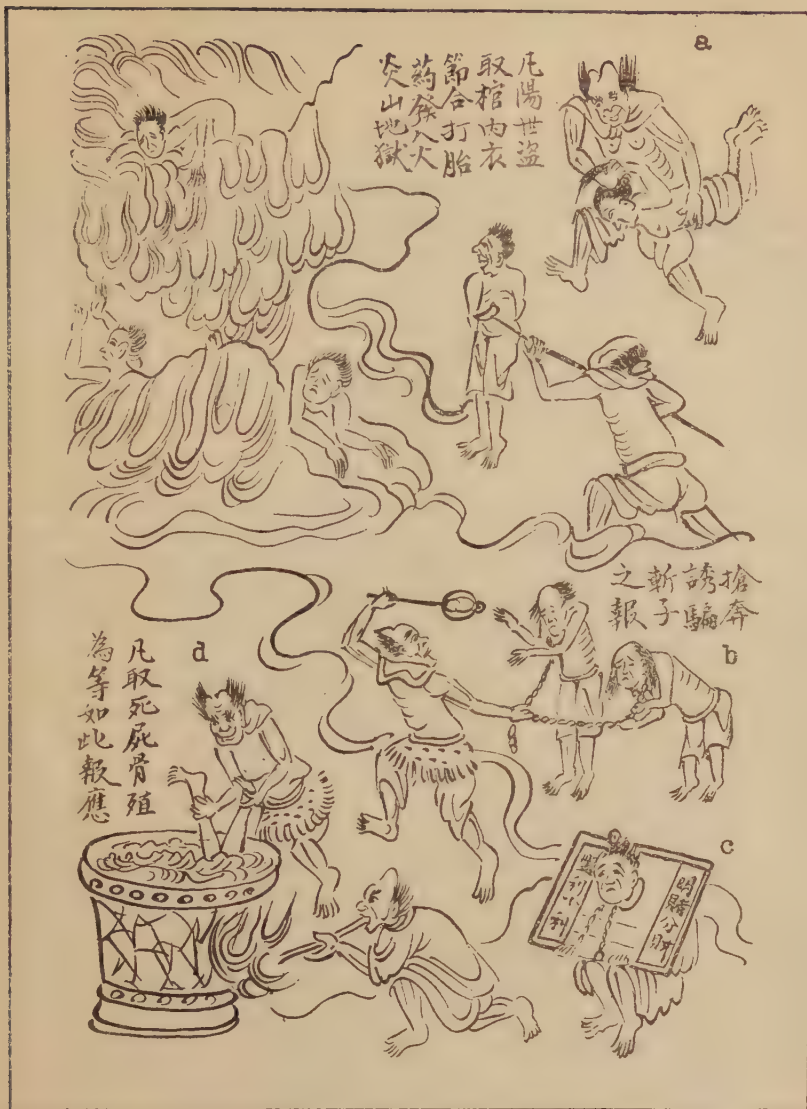 a
凡陽世盜
取棺內衣
節合打胎
葯發入火
炎山地獄
搶奔
誘騙
斬子
之報
b
d
凡取死屍骨殖
為等如此報應
c
明賭分財
利